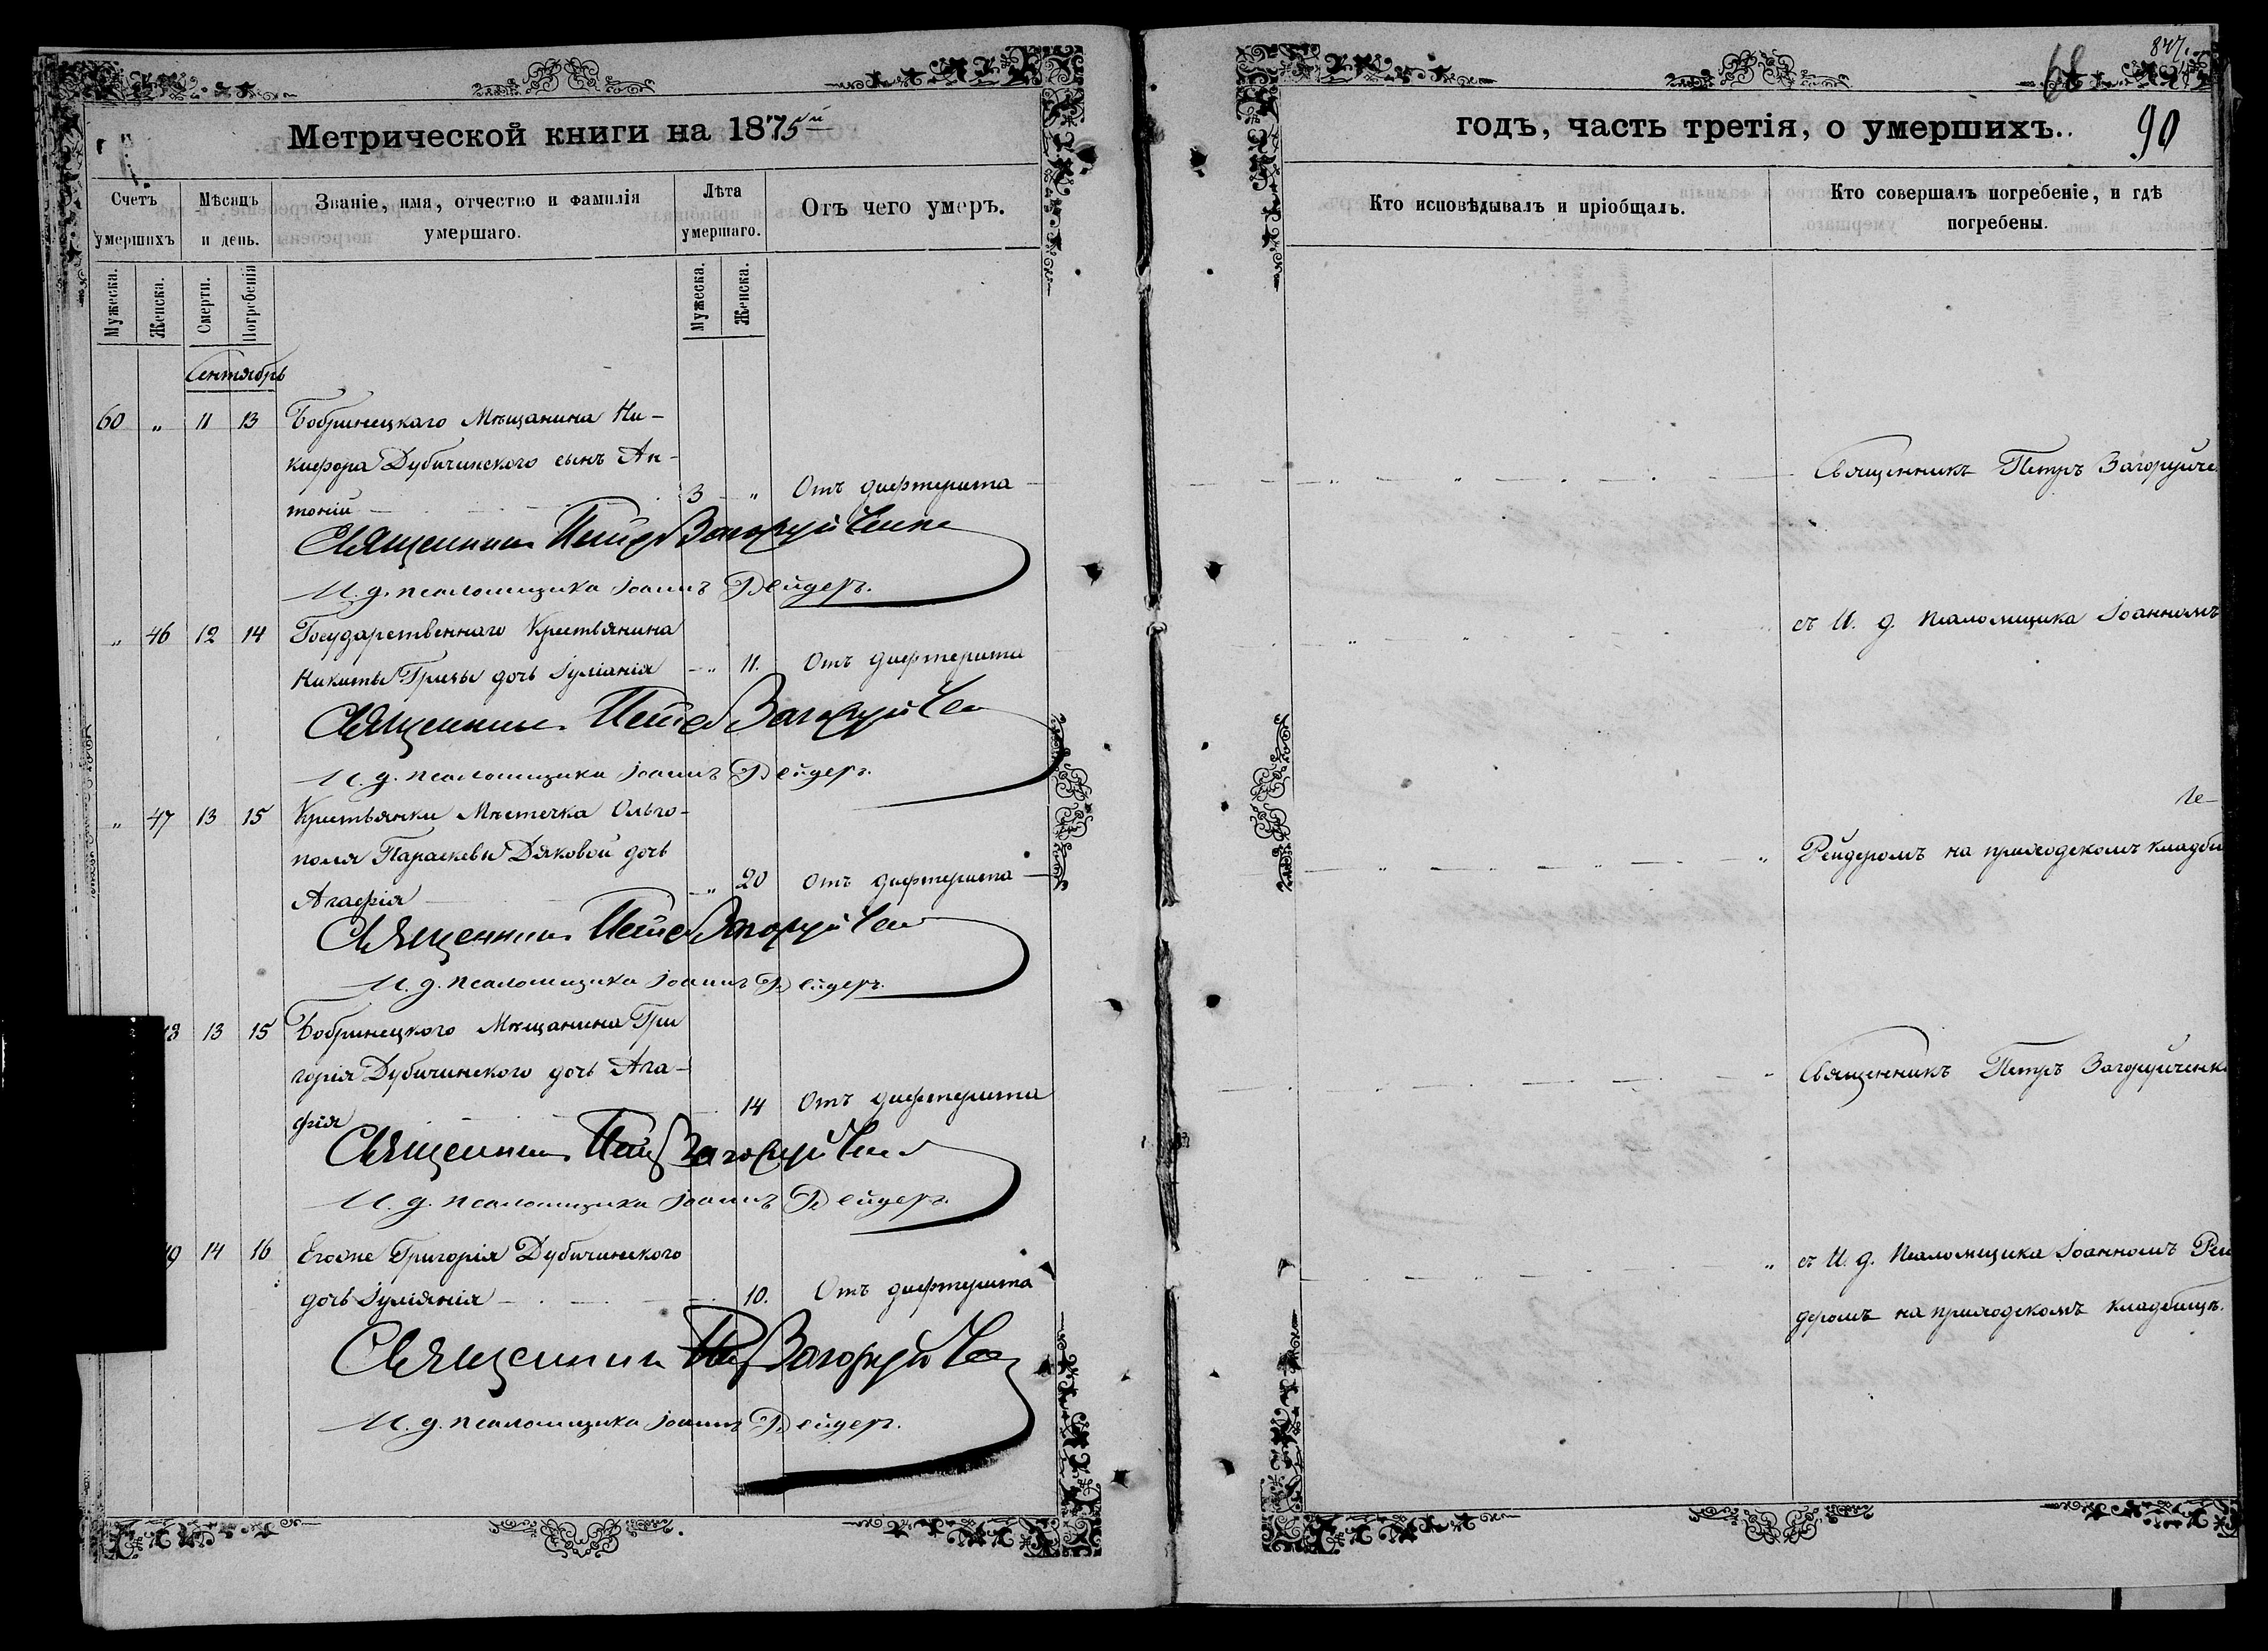 Метрической книги на 1875й
Счетъ умершихъ
Мѣсяцъ и день.
Званіе, имя, отчество и фамилія умершаго.
Лѣта умершаго.
Отъ чего умеръ.
Мужеска.
Женска.
Смерти.
Погребенія
Мужеска.
Женска.
Сентябрь
60 „ 11 13 Бобринецкаго Мѣщанина Ни-
кифора Дубичинского сынъ Ан-
тоній 3 „ Отъ дифтерита
Священникъ Петръ Загоруйченко
И. д. псаломщика Іоаннъ Рейдеръ.
„ 46 12 14 Государственнаго Крестьянина
Никиты Гризы дочь Іуліанія „ 11. Отъ дифтерита
Священникъ Петръ Загоруйченко
И. д. псаломщика Іоаннъ Рейдеръ.
„ 47 13 15 Крестьянки Мѣстечка Ольго-
поля Параскевы Дяковой дочь
Агафія „ 20 Отъ дифтерита
Священникъ Петръ Загоруйченко
И. д. псаломщика Іоаннъ Рейдеръ.
8 13 15 Бобринецкого Мѣщанина Гри
горія Дубичинского дочь Ага-
фія 14 Отъ дифтерита
Священникъ Петръ Загоруйченко
И. д. псаломщика Іоаннъ Рейдеръ.
9 14 16 Егоже Григорія Дубичинского
дочь Іуліянія 10. Отъ дифтерита
Священникъ Петръ Загоруйченко
И. д. псаломщика Іоаннъ Рейдеръ.
847.
68
годъ, часть третія, о умершихъ.. 90
Кто исповѣдывалъ и пріобщалъ.
Кто совершалъ погребеніе, и гдѣ погребены.
Священникъ Петръ Загоруйче
съ И. д. Псаломщика Іоанномъ
Рейдеромъ на приходскомъ кладби
Священникъ Петръ Загоруйченк
съ И. д. Псаломщика Іоанномъ Рей
деромъ на приходскомъ кладбищѣ.